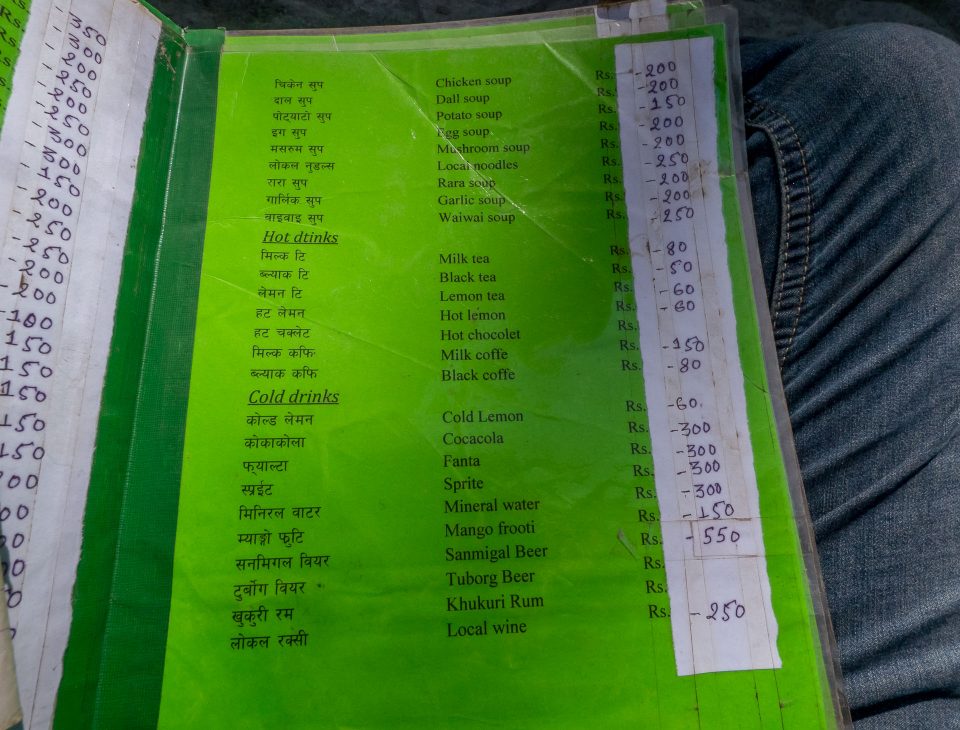 Rs.
Rs.
- 350
- 300
- 200
- 250
- 200
- 250
- 150
- 200
- 250
- 250
- 200
- 200
- 100
150
150
150
150
150
चिकेन सुप Chicken soup Rs. - 200
दाल सुप Dall soup Rs. - 200
पोट्याटो सुप Potato soup Rs. - 150
इग सुप Egg soup Rs. - 200
मसरुम सुप Mushroom soup Rs. - 200
लोकल नुडल्स Local noodles Rs. - 250
रारा सुप Rara soup Rs. - 200
गार्लिक सुप Garlic soup Rs. - 200
वाइवाइ सुप Waiwai soup Rs. - 250
Hot dtinks
मिल्क टि Milk tea Rs. - 80
ब्ल्याक टि Black tea Rs. - 50
लेमन टि Lemon tea Rs. - 60
हट लेमन Hot lemon Rs. - 60
हट चक्लेट Hot chocolet Rs.
मिल्क कफि Milk coffe Rs. - 150
ब्ल्याक कफि Black coffe Rs. - 80
Cold drinks
कोल्ड लेमन Cold Lemon Rs. - 60
कोकाकोला Cocacola Rs. - 300
फ्याल्टा Fanta Rs. - 300
स्प्रईट Sprite Rs. - 300
मिनिरल वाटर Mineral water Rs. - 300
म्याङ्गो फुटि Mango frooti Rs. - 150
सनमिगल वियर Sanmigal Beer Rs. - 550
टुर्बोग वियर Tuborg Beer Rs.
खुकुरी रम Khukuri Rum Rs.
लोकल रक्सी Local wine Rs. - 250